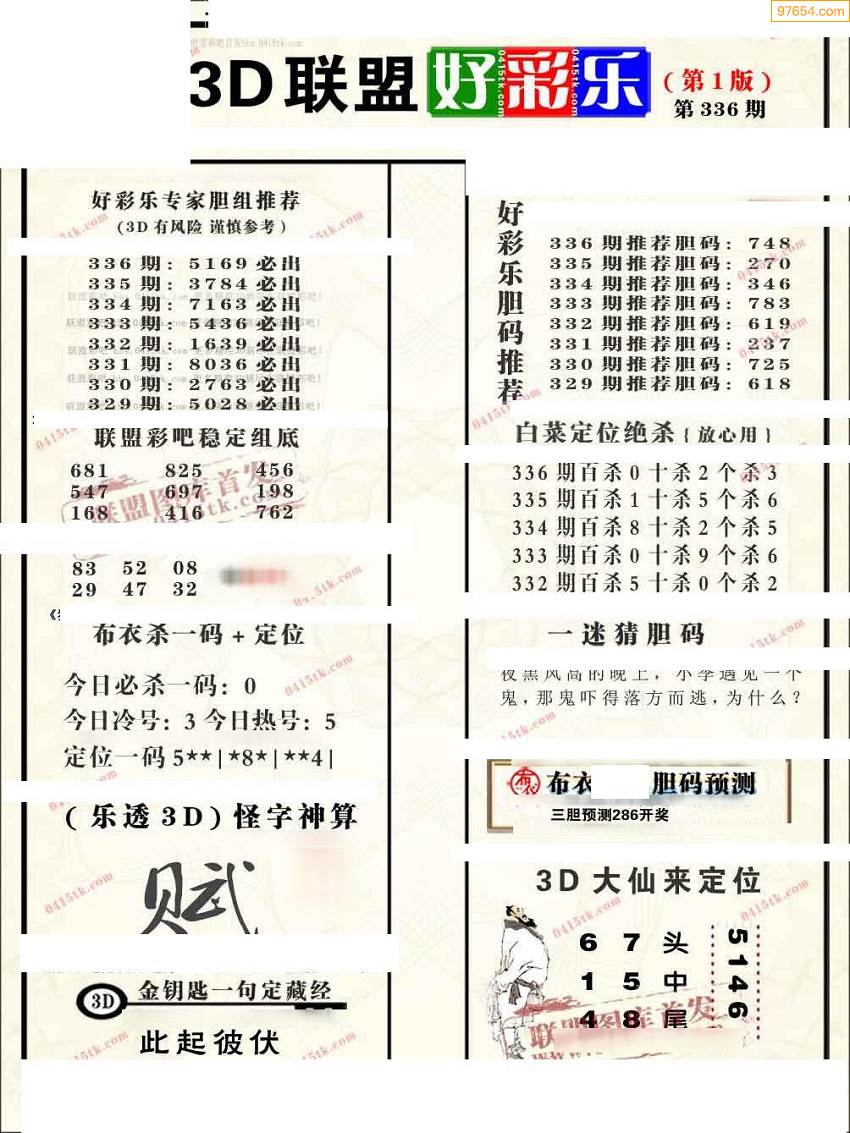 97654.com
3D联盟好彩乐
(第1版)
第336期
好彩乐专家胆组推荐
(3D有风险 谨慎参考)
336期:5169必出
335期:3784必出
334期:7163必出
333期:5436必出
332期:1639必出
331期:8036必出
330期:2763必出
329期:5028必出
联盟彩吧稳定组底
681 825 456
547 697 198
168 416 762
83 52 08
29 47 32
布衣杀一码+定位
今日必杀一码:0
今日冷号:3 今日热号:5
定位一码5**|*8*|**4|
(乐透3D)怪字神算
赋
3D 金钥匙一句定藏经
此起彼伏
好彩乐胆码推荐
336期推荐胆码:748
335期推荐胆码:270
334期推荐胆码:346
333期推荐胆码:783
332期推荐胆码:619
331期推荐胆码:237
330期推荐胆码:725
329期推荐胆码:618
白菜定位绝杀{放心用}
336期百杀0十杀2个杀3
335期百杀1十杀5个杀6
334期百杀8十杀2个杀5
333期百杀0十杀9个杀6
332期百杀5十杀0个杀2
一迷猜胆码
夜黑风高的晚上,小李遇见一个
鬼,那鬼吓得落方而逃,为什么?
布衣 布衣 胆码预测
三胆预测286开奖
3D大仙来定位
6 7 头
1 5 中
4 8 尾
5146
联盟图库首发
0415tk.com